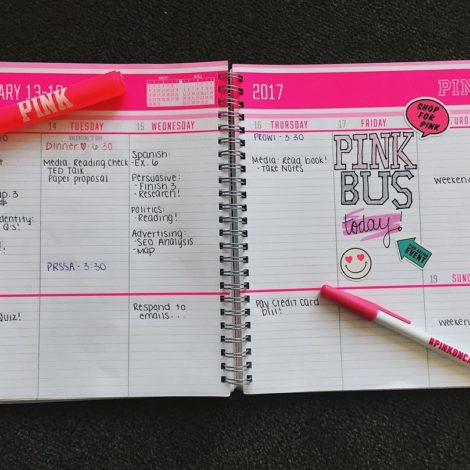 ARY 13-19
PINK
14 TUESDAY
VALENTINE'S DAY
Dinner ♥ 6:30
Media: Reading Check
TED Talk
Paper proposal
PRSSA - 3:30
15 WEDNESDAY
Spanish:
- EX. 6
Persuasive:
- Finish 3
- Research!
Politics:
- Reading!
Advertising:
- SEO Analysis
- Map
Respond to
emails...
Quiz!
2017
PINK
16 THURSDAY
PROWL - 3:30
Media: Read book!
- Take Notes
Pay Credit Card
bill!
17 FRIDAY
PINK
BUS
today!
SHOP
FOR
PINK
EVENT
WEEKEND
19 SUND
Weekend
#PINKONCA